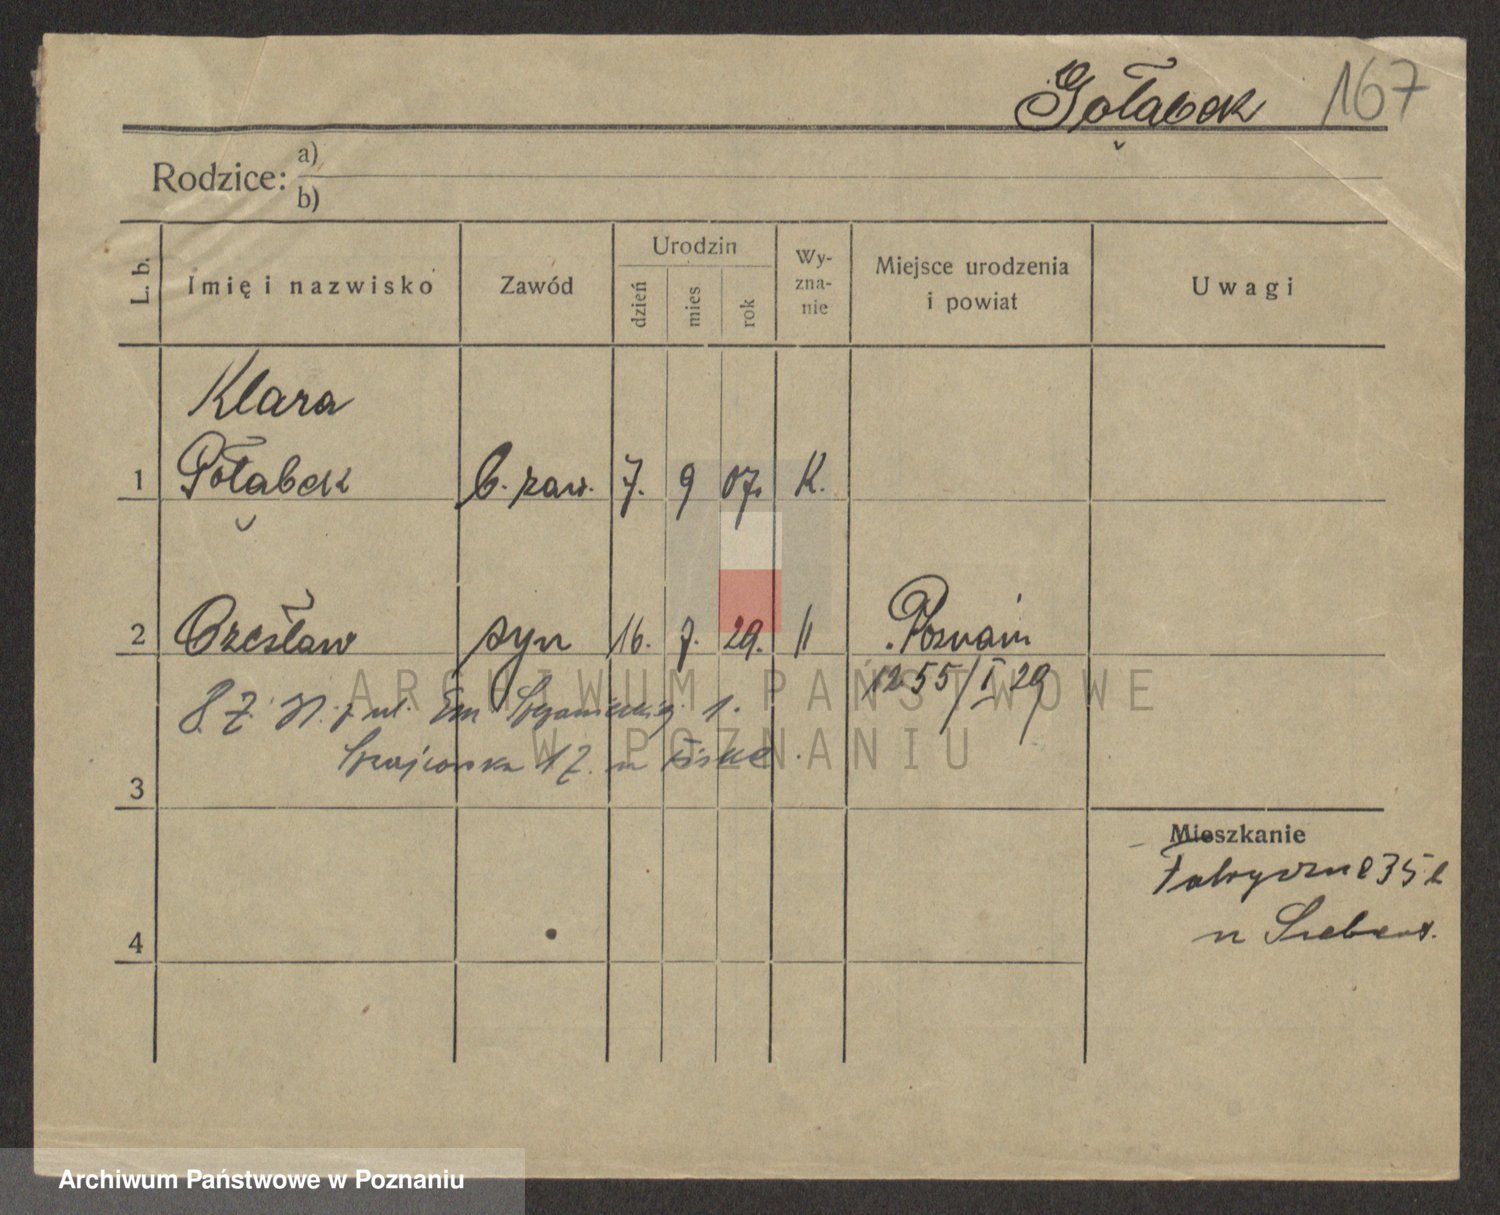 Gołąbek 167
Rodzice: a)
b)
L. b.
Imię i nazwisko
Zawód
Urodzin
dzień
mies
rok
Wy-
zna-
nie
Miejsce urodzenia
i powiat
Uwagi
Klara
1 Gołąbek b. zaw. 7. 9 07. K.
2 Czesław syn 16. 7. 29. " Poznań
1255/I 29
ul. 1.
17.
3
Mieszkanie
35
4
ARCHIWUM PAŃSTWOWE
W POZNANIU
Archiwum Państwowe w Poznaniu